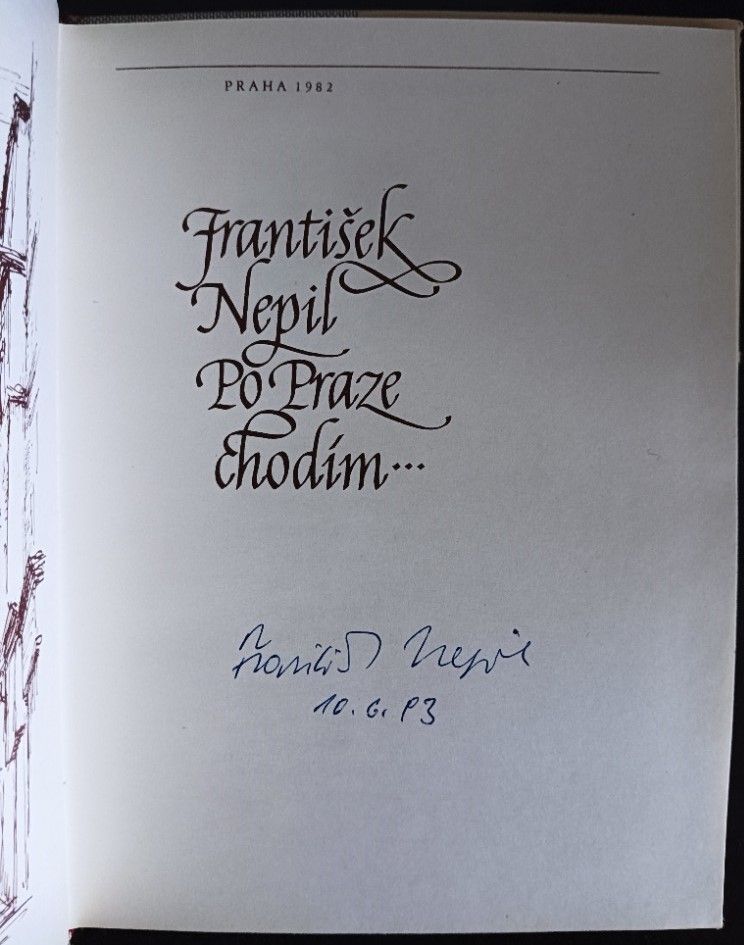 PRAHA 1982
František
Nepil
Po Praze
chodím...
František Nepil
10. 6. 83